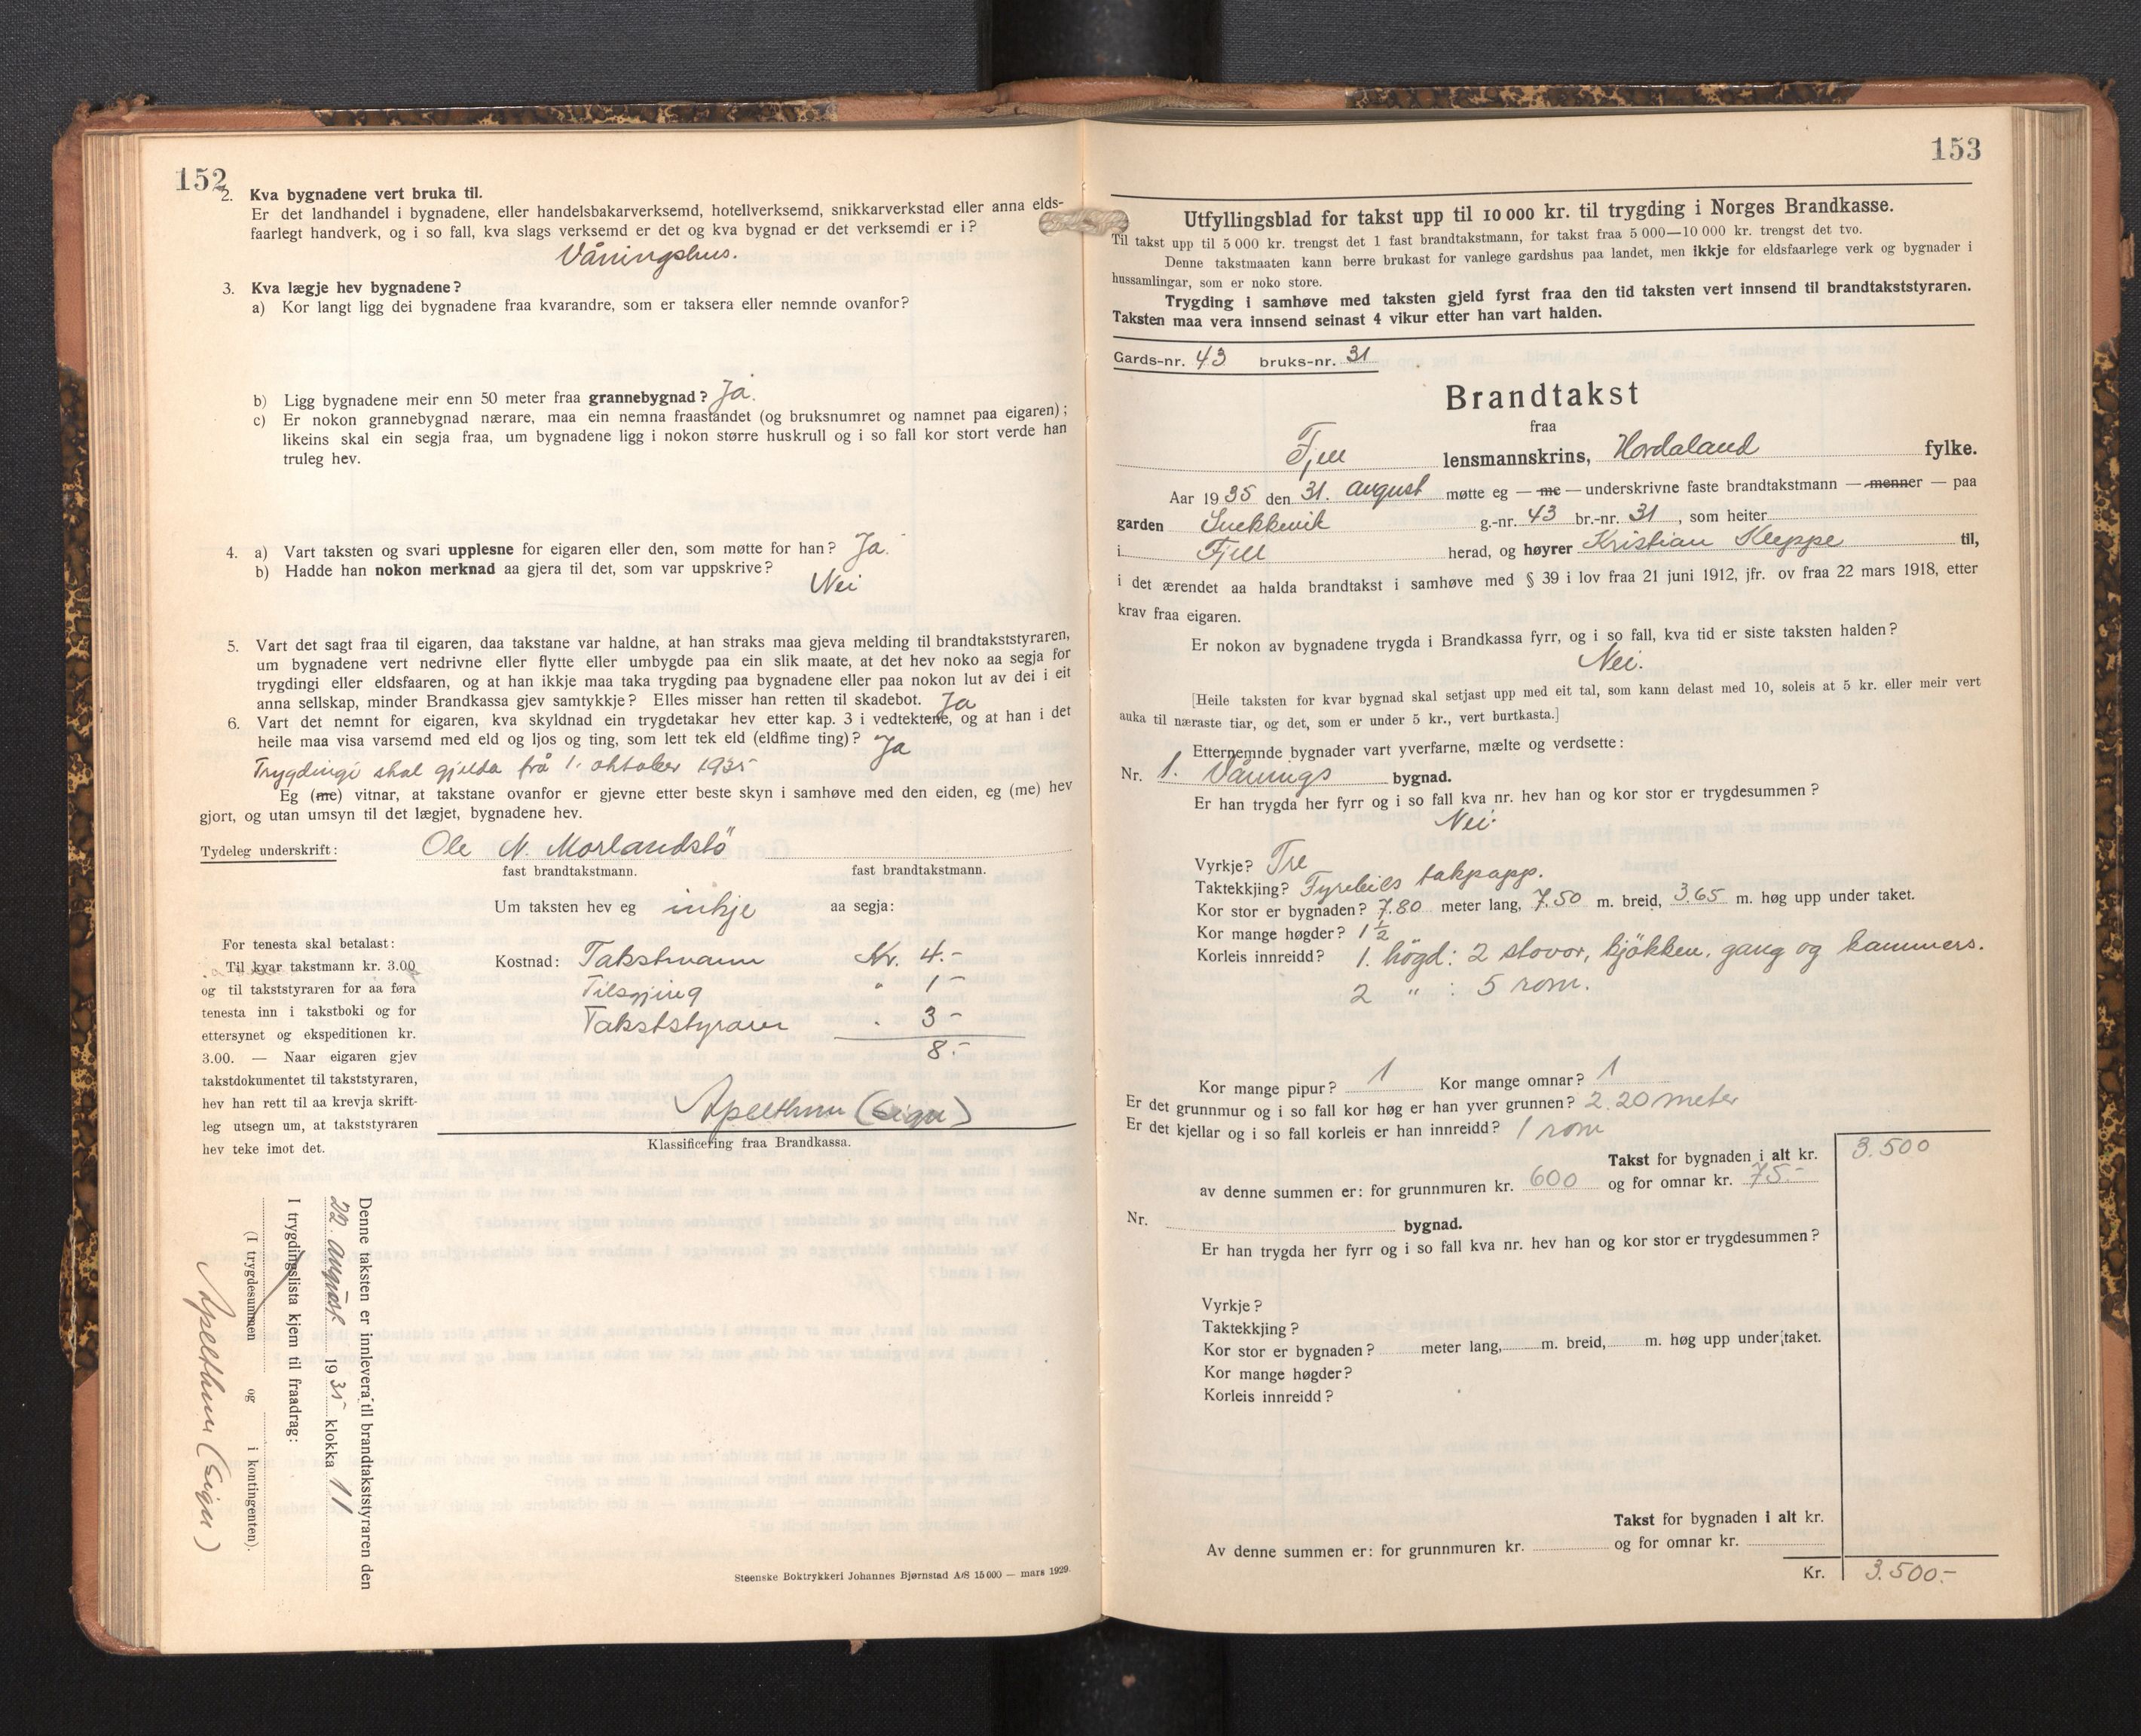 152
2. Kva bygnadene vert bruka til.
Er det landhandel i bygnadene, eller handelsbakarverksemd, hotellverksemd, snikkarverkstad eller anna elds-
faarlegt handverk, og i so fall, kva slags verksemd er det og kva bygnad er det verksemdi er i?
Våningshus.
3. Kva lægje hev bygnadene?
a) Kor langt ligg dei bygnadene fraa kvarandre, som er taksera eller nemnde ovanfor?
b) Ligg bygnadene meir enn 50 meter fraa grannebygnad? Ja.
c) Er nokon grannebygnad nærare, maa ein nemna fraastandet (og bruksnumret og namnet paa eigaren);
likeins skal ein segja fraa, um bygnadene ligg i nokon større huskrull og i so fall kor stort verde han
truleg hev.
4. a) Vart taksten og svari upplesne for eigaren eller den, som møtte for han? Ja.
b) Hadde han nokon merknad aa gjera til det, som var uppskrive?
Nei
5. Vart det sagt fraa til eigaren, daa takstane var haldne, at han straks maa gjeva melding til brandtakststyraren,
um bygnadene vert nedrivne eller flytte eller umbygde paa ein slik maate, at det hev noko aa segja for
trygdingi eller eldsfaaren, og at han ikkje maa taka trygding paa bygnadene eller paa nokon lut av dei i eit
anna sellskap, minder Brandkassa gjev samtykkje? Elles misser han retten til skadebot. Ja
6. Vart det nemnt for eigaren, kva skyldnad ein trygdetakar hev etter kap. 3 i vedtektene, og at han i det
heile maa visa varsemd med eld og ljos og ting, som lett tek eld (eldfime ting)? Ja
Trygdingi skal gjelda frå 1. oktober 1935
Eg (me) vitnar, at takstane ovanfor er gjevne etter beste skyn i samhøve med den eiden, eg (me) hev
gjort, og utan umsyn til det lægjet, bygnadene hev.
Tydeleg underskrift: Ole N. Morlandstö
fast brandtakstmann. fast brandtakstmann.
Um taksten hev eg inkje aa segja:
For tenesta skal betalast:
Til kvar takstmann kr. 3.00
og til takststyraren for aa føra
tenesta inn i takstboki og for
ettersynet og ekspeditionen kr.
3.00. — Naar eigaren gjev
takstdokumentet til takststyraren,
hev han rett til aa krevja skrift-
leg utsegn um, at takststyraren
hev teke imot det.
Kostnad: Takstmann Kr. 4.-
Tilsyning " 1-
Takststyraren " 3-
8.-
Apelthun (sign)
Klassificering fraa Brandkassa.
Denne taksten er innlevera till brandtakststyraren den
22. august 1935 klokka 11
I trygdingslista kjem til fraadrag:
(I trygdesummen og i kontingenten).
Apelthun (sign)
Steenske Boktrykkeri Johannes Bjørnstad A/S 15 000 — mars 1929.
153
Utfyllingsblad for takst upp til 10 000 kr. til trygding i Norges Brandkasse.
Til takst upp til 5 000 kr. trengst det 1 fast brandtakstmann, for takst fraa 5 000—10 000 kr. trengst det tvo.
Denne takstmaaten kann berre brukast for vanlege gardshus paa landet, men ikkje for eldsfaarlege verk og bygnader i
hussamlingar, som er noko store.
Trygding i samhøve med taksten gjeld fyrst fraa den tid taksten vert innsend til brandtakststyraren.
Taksten maa vera innsend seinast 4 vikur etter han vart halden.
Gards-nr. 43 bruks-nr. 31
Brandtakst
fraa
Fjell lensmannskrins, Hordaland fylke.
Aar 1935 den 31. august møtte eg — me — underskrivne faste brandtakstmann — menner — paa
garden Snekkevik g.-nr. 43 br.-nr. 31, som heiter
i Fjell herad, og høyrer Kristian Kleppe til,
i det ærendet aa halda brandtakst i samhøve med § 39 i lov fraa 21 juni 1912, jfr. ov fraa 22 mars 1918, etter
krav fraa eigaren.
Er nokon av bygnadene trygda i Brandkassa fyrr, og i so fall, kva tid er siste taksten halden?
Nei.
[Heile taksten for kvar bygnad skal setjast upp med eit tal, som kann delast med 10, soleis at 5 kr. eller meir vert
auka til næraste tiar, og det, som er under 5 kr., vert burtkasta.]
Etternemnde bygnader vart yverfarne, mælte og verdsette:
Nr. 1. Vånings bygnad.
Er han trygda her fyrr og i so fall kva nr. hev han og kor stor er trygdesummen?
Nei.
Vyrkje? Tre
Taktekkjing? Fyrebils takpapp.
Kor stor er bygnaden? 7.80 meter lang, 7.50 m. breid, 3.65 m. høg upp under taket.
Kor mange høgder? 1 1/2
Korleis innreidd? 1. högd: 2 stovor, kjökken, gang og kammers.
2 " : 5 rom.
Kor mange pipur? 1 Kor mange omnar? 1
Er det grunnmur og i so fall kor høg er han yver grunnen? 2.20 meter
Er det kjellar og i so fall korleis er han innreidd? 1 rom
Takst for bygnaden i alt kr. 3.500
av denne summen er: for grunnmuren kr. 600 og for omnar kr. 75.-
Nr. bygnad.
Er han trygda her fyrr og i so fall kva nr. hev han og kor stor er trygdesummen?
Vyrkje?
Taktekkjing?
Kor stor er bygnaden? meter lang, m. breid, m. høg upp under taket.
Kor mange høgder?
Korleis innreidd?
Takst for bygnaden i alt kr.
Av denne summen er: for grunnmuren kr. og for omnar kr.
Kr. 3.500.-